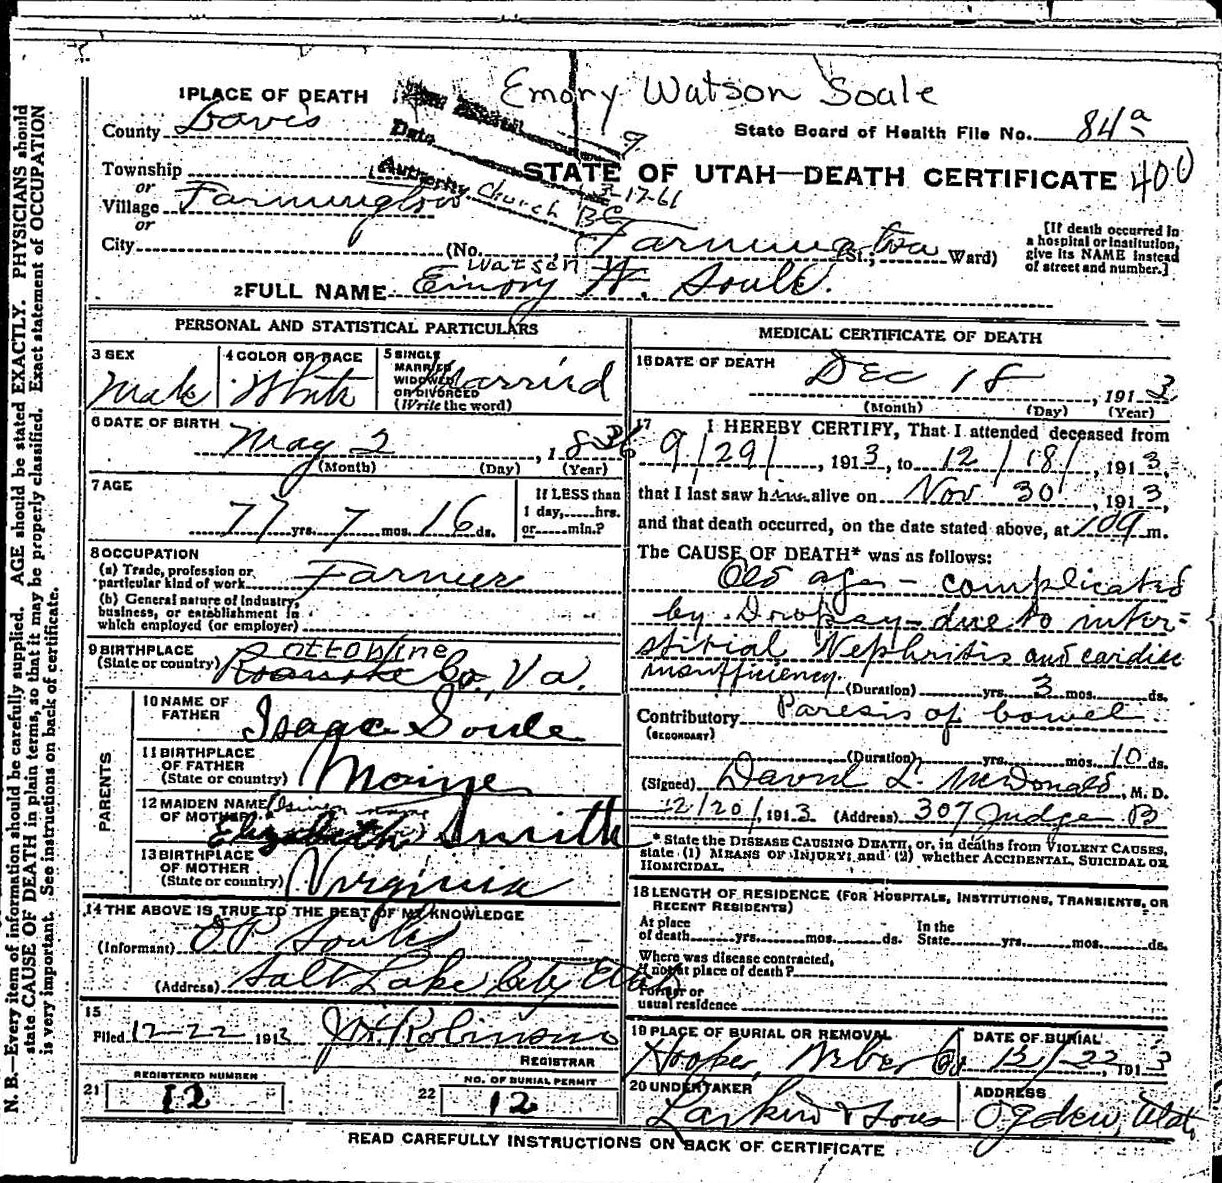 Emory Watson Soale
1 PLACE OF DEATH
County Davis
Date
9
State Board of Health File No. 84a
Township
Authority Church
3-17-61
STATE OF UTAH—DEATH CERTIFICATE 400
or
Village Farmington
or
City (No. Farmington St.; Ward)
[If death occurred in a hospital or institution, give its NAME instead of street and number.]
Watson
2 FULL NAME Emory W. Soule.
PERSONAL AND STATISTICAL PARTICULARS
3 SEX
Male
4 COLOR OR RACE
White
5 SINGLE MARRIED WIDOWED OR DIVORCED (Write the word)
Married
6 DATE OF BIRTH
May 2, 1836
(Month) (Day) (Year)
7 AGE
77 yrs. 7 mos. 16 ds.
If LESS than 1 day, hrs. or min.?
8 OCCUPATION
(a) Trade, profession or particular kind of work Farmer
(b) General nature of industry, business, or establishment in which employed (or employer)
9 BIRTHPLACE
(State or country) Roanoke Co., Va.
PARENTS
10 NAME OF FATHER
Isaac Soule
11 BIRTHPLACE OF FATHER (State or country)
Maine
12 MAIDEN NAME OF MOTHER
Elizabeth Smith
13 BIRTHPLACE OF MOTHER (State or country)
Virginia
14 THE ABOVE IS TRUE TO THE BEST OF MY KNOWLEDGE
(Informant) O P Soule
(Address) Salt Lake City Utah
15
Filed 12-22 1913 J H Robinson
REGISTRAR
REGISTERED NUMBER
21 12
NO. OF BURIAL PERMIT
22 12
MEDICAL CERTIFICATE OF DEATH
16 DATE OF DEATH
Dec 18, 1913
(Month) (Day) (Year)
17 I HEREBY CERTIFY, That I attended deceased from
9/29/, 1913, to 12/18/, 1913,
that I last saw him alive on Nov 30, 1913,
and that death occurred, on the date stated above, at m.
The CAUSE OF DEATH* was as follows:
Old age - complicated
by Dropsy - due to inter-
stitial Nephritis and cardiac
insufficiency. (Duration) yrs. 3 mos. ds.
Contributory Paresis of bowel
(SECONDARY)
(Duration) yrs. mos. 10 ds.
(Signed) David L. McDonald, M. D.
12/20/, 1913 (Address) 307 Judge B
* State the DISEASE CAUSING DEATH, or, in deaths from VIOLENT CAUSES,
state (1) MEANS OF INJURY; and (2) whether ACCIDENTAL, SUICIDAL OR
HOMICIDAL.
18 LENGTH OF RESIDENCE (FOR HOSPITALS, INSTITUTIONS, TRANSIENTS, OR
RECENT RESIDENTS)
At place of death yrs. mos. ds. In the State yrs. mos. ds.
Where was disease contracted,
if not at place of death?
Former or
usual residence
19 PLACE OF BURIAL OR REMOVAL
Hooper, Weber Co
DATE OF BURIAL
12/22, 1913
20 UNDERTAKER
Larkin & Sons
ADDRESS
Ogden, Utah
READ CAREFULLY INSTRUCTIONS ON BACK OF CERTIFICATE
N. B.—Every item of information should be carefully supplied. AGE should be stated EXACTLY. PHYSICIANS should
state CAUSE OF DEATH in plain terms, so that it may be properly classified. Exact statement of OCCUPATION
is very important. See instructions on back of certificate.